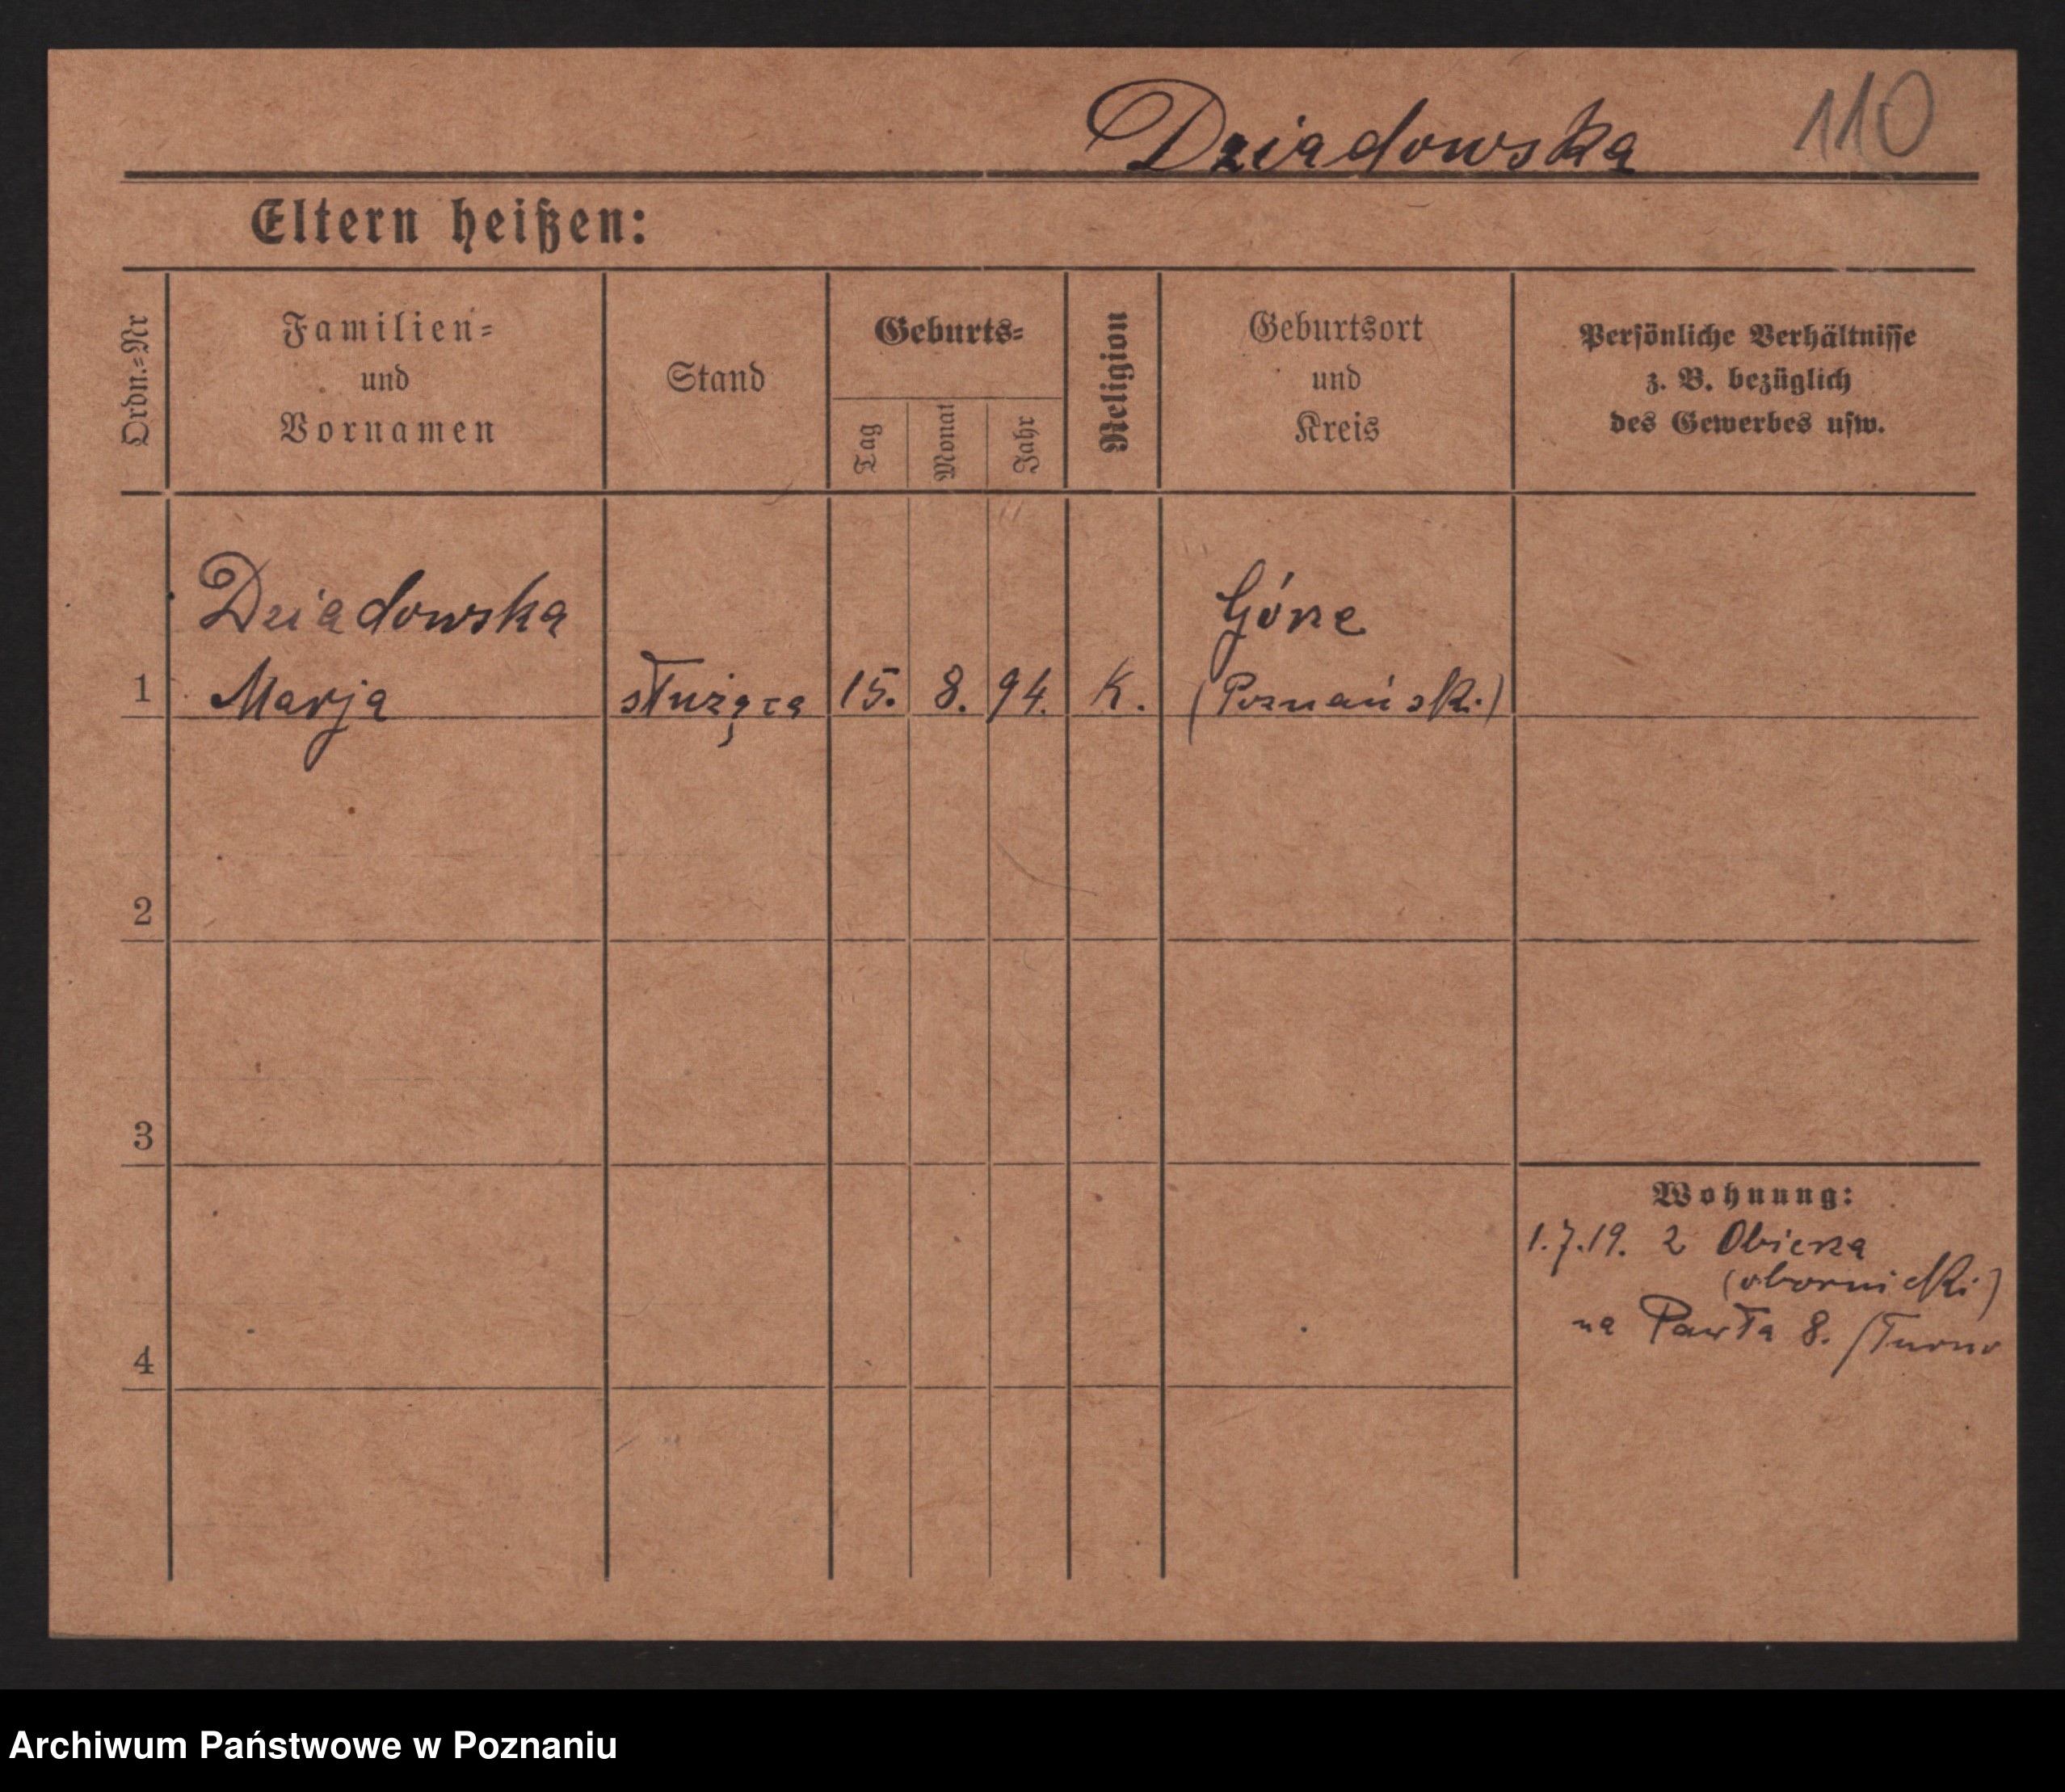 Dziadowska 110
Eltern heißen:
Ordn.=Nr
Familien=
und
Vornamen
Stand
Geburts=
Tag
Monat
Jahr
Religion
Geburtsort
und
Kreis
Persönliche Verhältnisse
z. B. bezüglich
des Gewerbes usw.
Dziadowska
Marja
służąca
15. 8. 94. K.
Górze
(Poznański)
1
2
3
4
Wohnung:
1.7.19. z Obierza
(obornicki)
na Pawła 8. /Turno
Archiwum Państwowe w Poznaniu